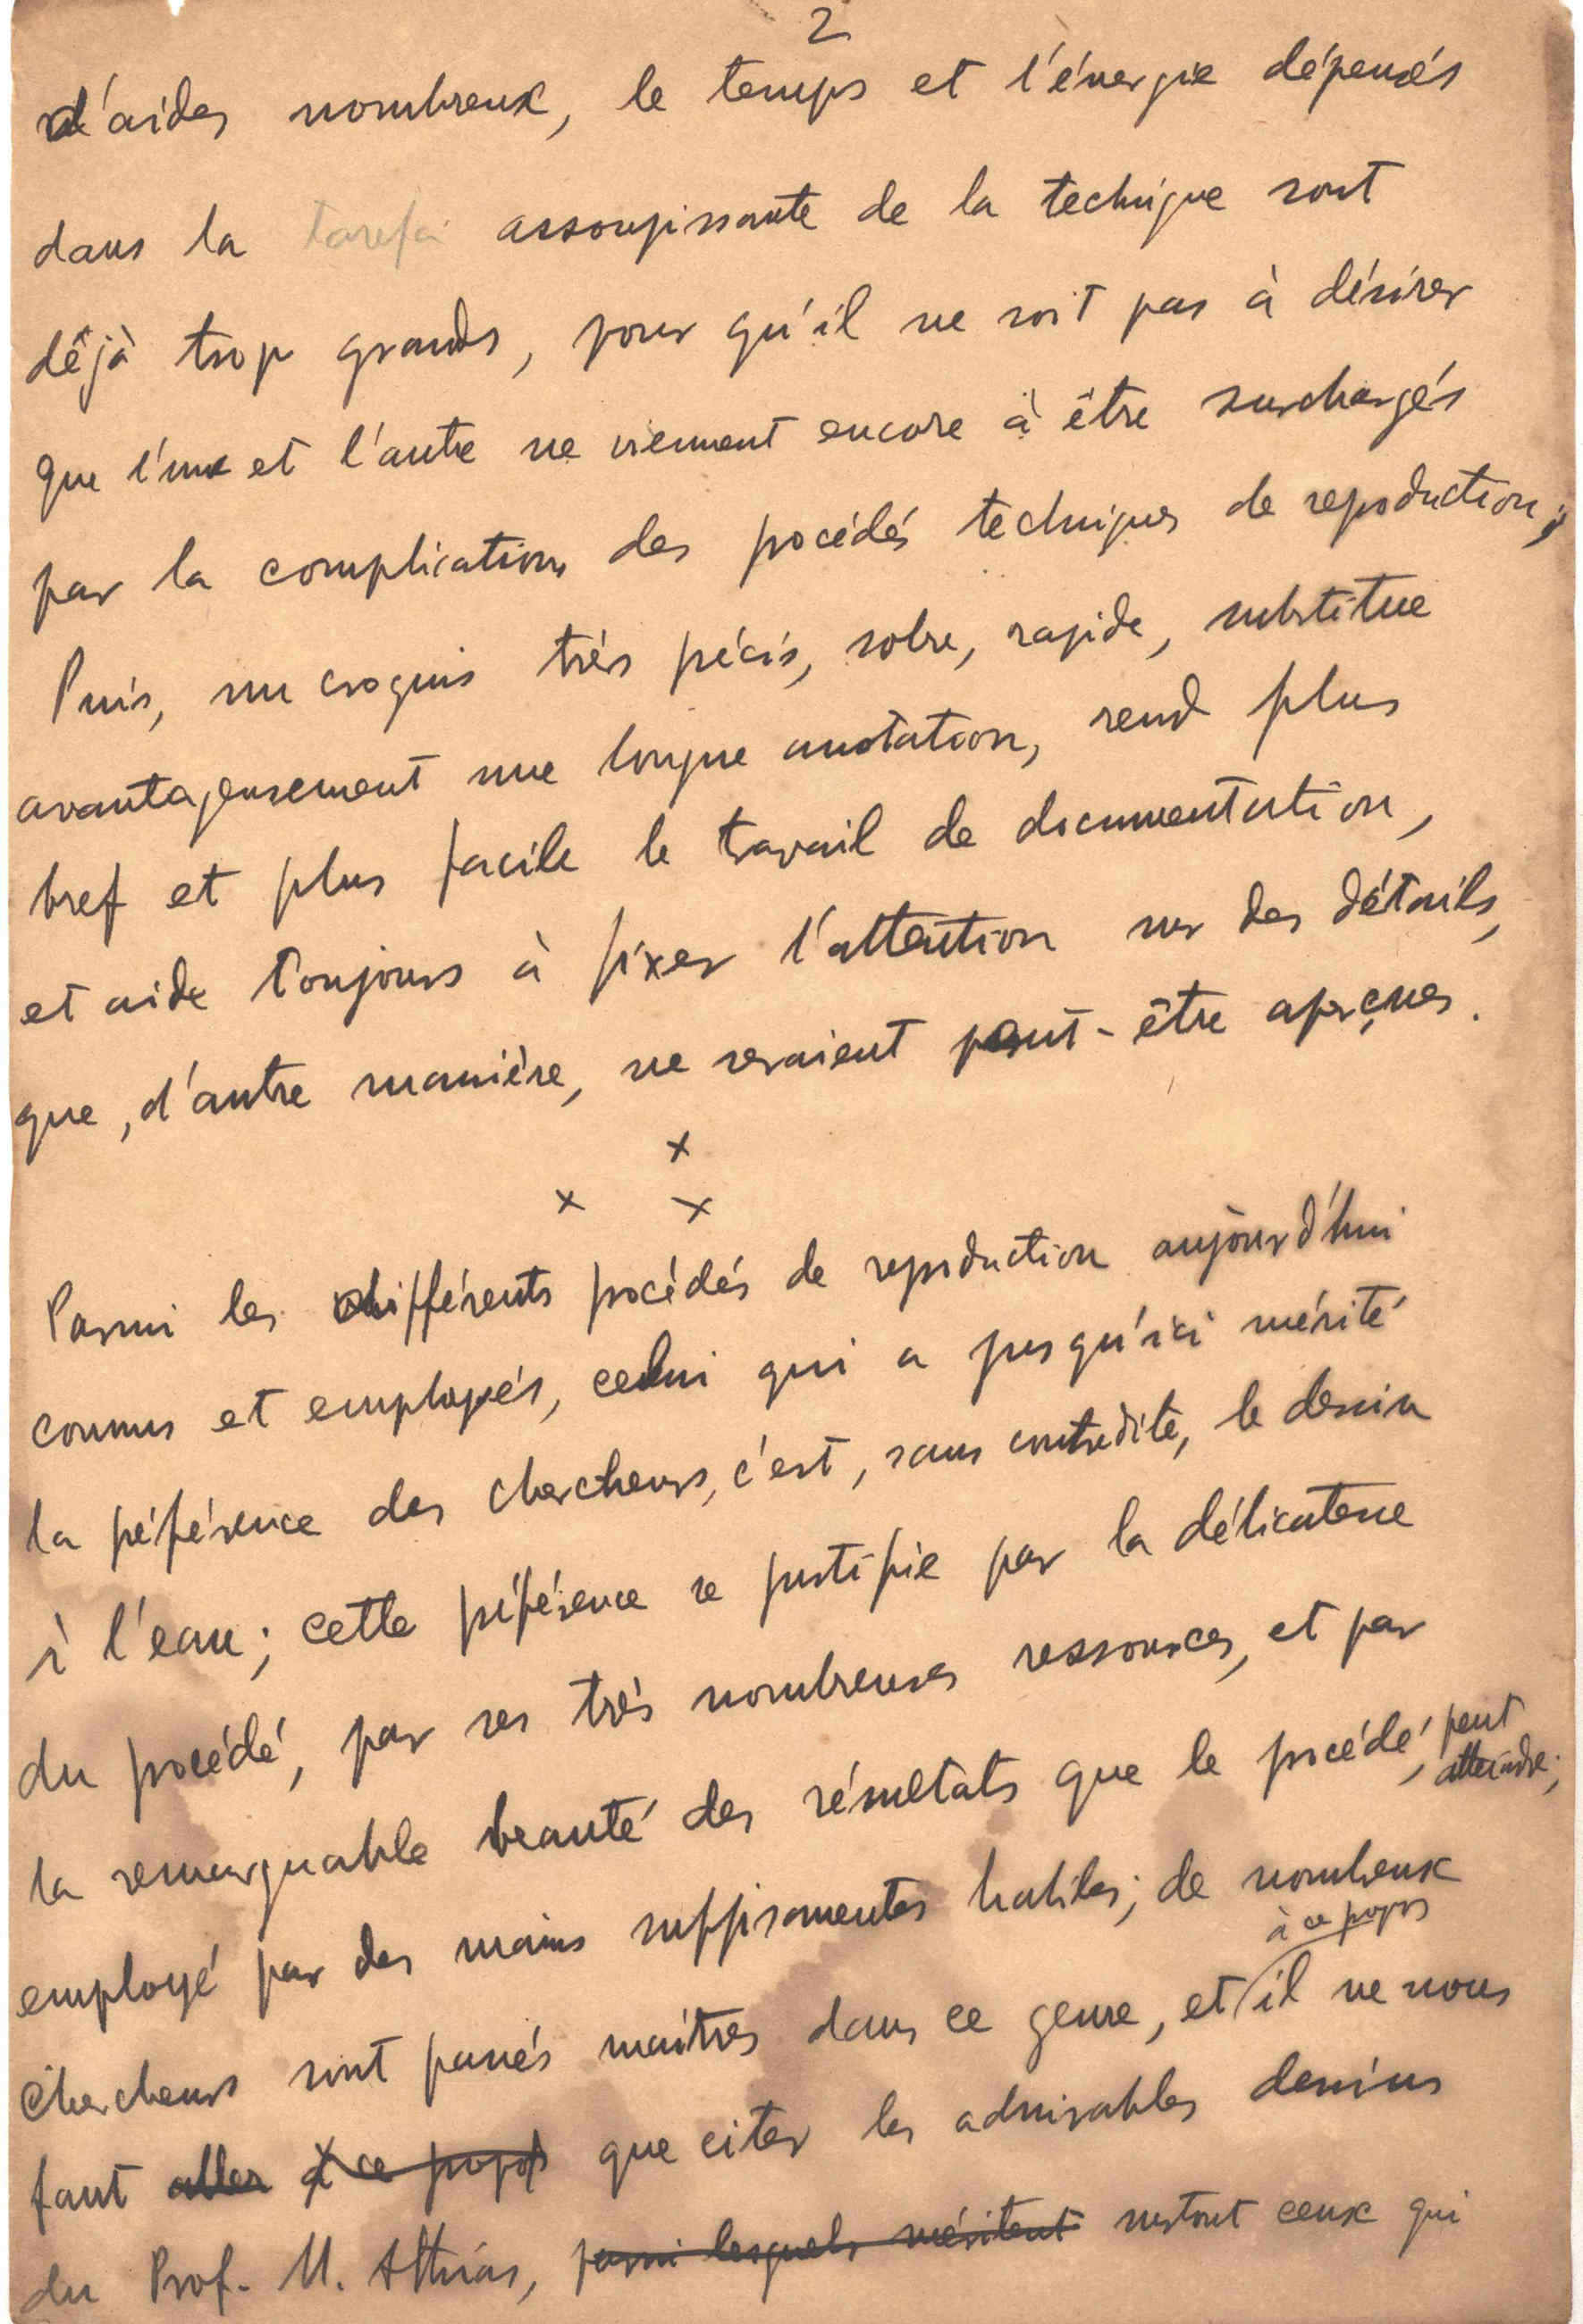 2
d'aides nombreux, le temps et l'énergie dépensés
dans la tarefa assoupissante de la technique sont
déjà trop grands, pour qu'il ne soit pas à désirer
que l'une et l'autre ne viennent encore à être surchargés
par la complication des procédés techniques de reproduction;
Puis, un croquis très précis, sobre, rapide, substitue
avantageusement une longue anotation, rend plus
bref et plus facile le travail de documentation,
et aide toujours à fixer l'attention sur des détails,
que, d'autre manière, ne seraient peut-être aperçues.
x
x x
Parmi les différents procédés de reproduction aujourd'hui
connus et employés, celui qui a jusqu'ici mérité
la préférence des chercheurs, c'est, sans contredite, le dessin
à l'eau; cette préférence se justifie par la délicatesse
du procédé, par ses très nombreuses ressources, et par
la remarquable beauté des résultats que le procédé, peut
atteindre;
employé par des mains suffisamentes habiles; de nombreux
à ce propos
chercheurs sont passés maîtres dans ce genre, et il ne nous
faut aller à ce propos que citer les admirables dessins
du Prof. M. Athias, parmi lesquels méritent surtout ceux qui